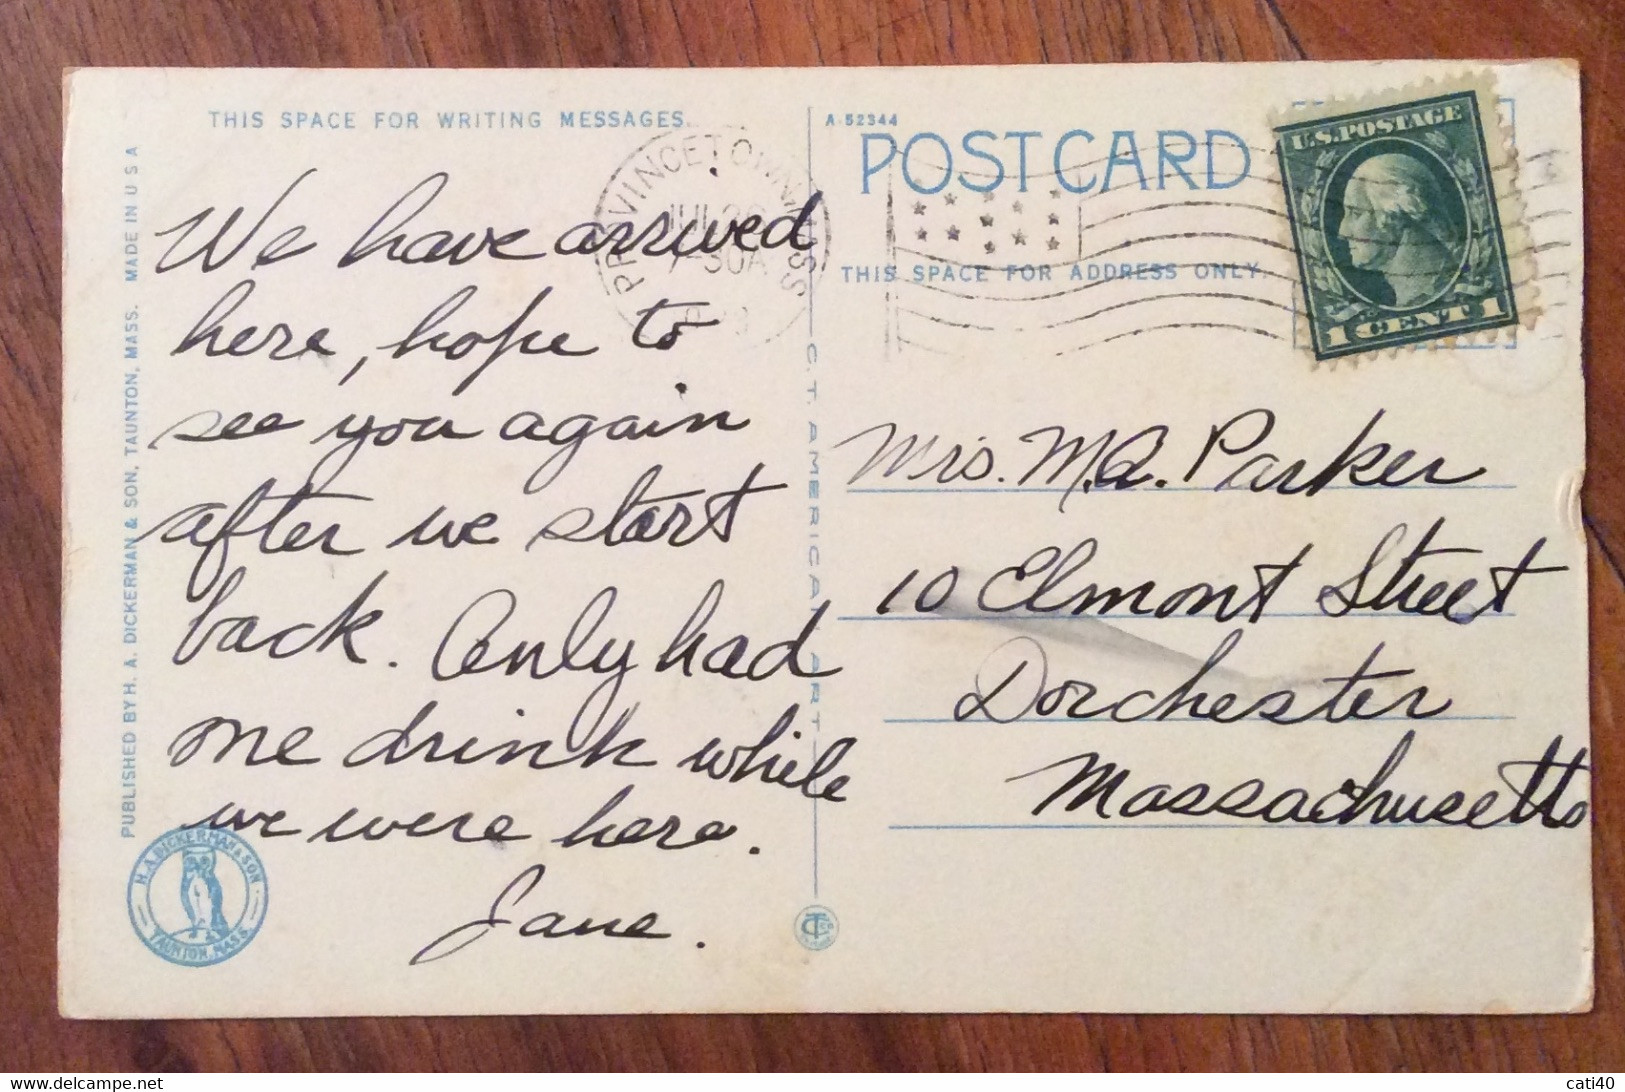 THIS SPACE FOR WRITING MESSAGES
We have arrived
here, hope to
see you again
after we start
back. Only had
one drink while
we were here.
Jane.
PUBLISHED BY H. A. DICKERMAN & SON, TAUNTON, MASS. MADE IN U S A
H.A. DICKERMAN & SON
TAUNTON, MASS.
PROVINCETOWN MASS
JUL
7-30A
C. T. AMERICAN ART
A-52344
POST CARD
THIS SPACE FOR ADDRESS ONLY
U.S. POSTAGE
1 CENT 1
Mrs. M.A. Parker
10 Elmont Street
Dorchester
Massachusetts
cati40